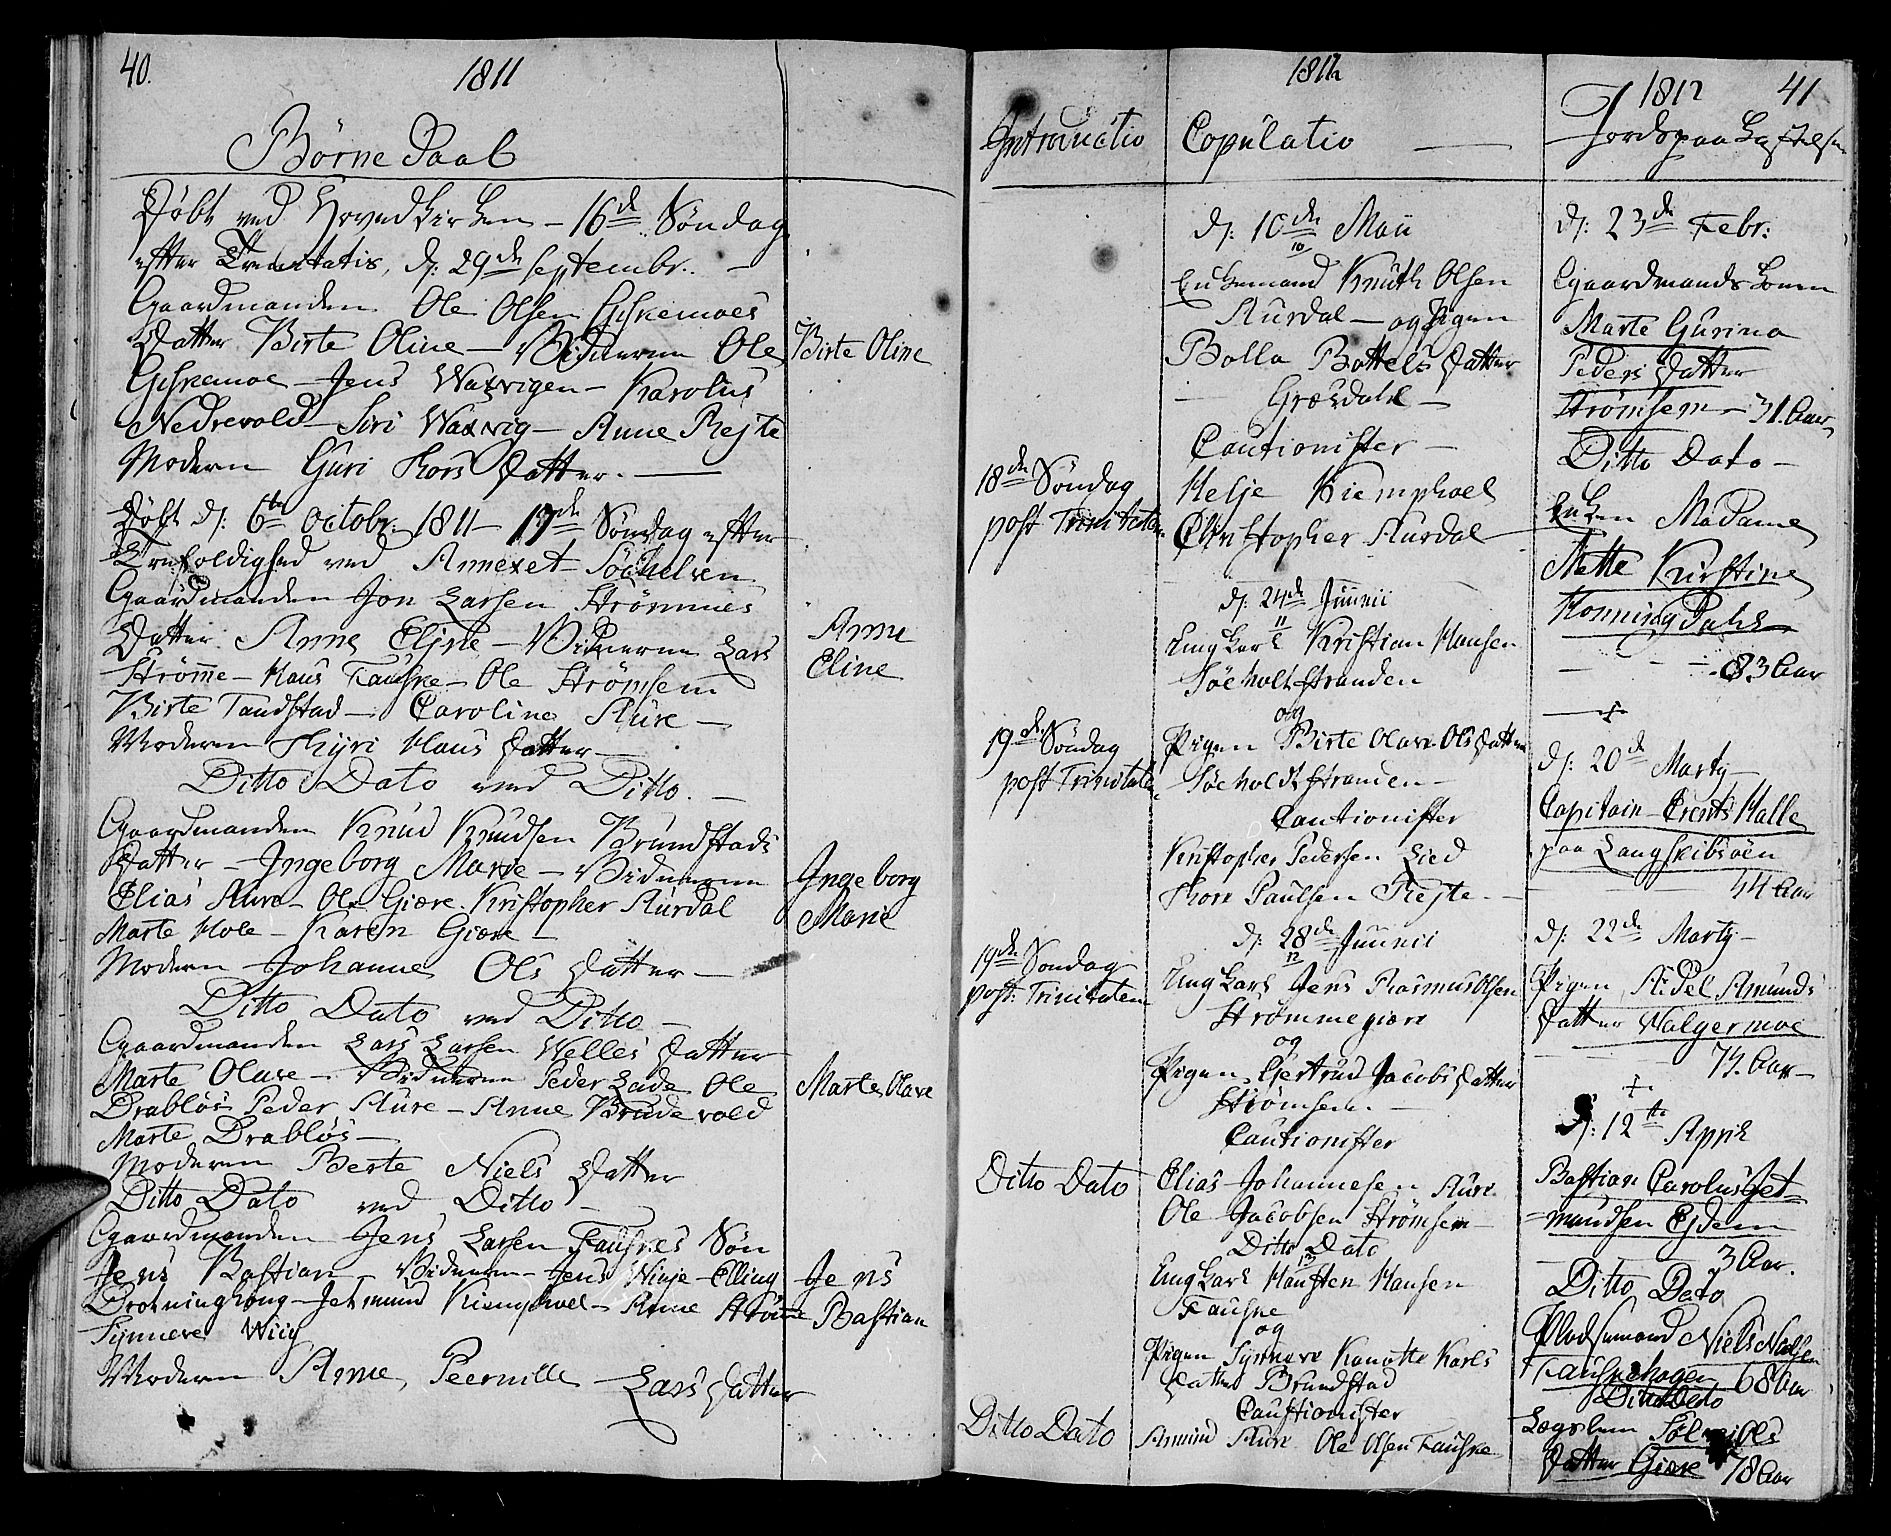 40.
1811
Børne Daab
Døbt ved Hovedkirken - 16de Søndag
efter Trenitatis, d: 29de Septembr. -
Gaardmanden Ole Olsen Giskemoes
Datter Birte Oline - Vidnerne Ole
Giskemoe - Jens Waxvigen - Karolus
Nedrevold - Siri Waxvig - Anne Rejte
Moderen Guri Thors Datter. -
Birte Oline
Døbt d: 6te Octobr. 1811 - 17de Søndag efter
Trefoldighed ved Annexet Søchelven
Gaardmanden Jon Larsen Strømmes
Datter Anne Eline - Vidnerne Lars
Strømme - Hans Fauske - Ole Strømsem
Birte Tandstad - Caroline Aure -
Moderen Thyri Hans Datter -
Anne
Eline
Ditto Dato ved Ditto. -
Gaardmanden Knud Knudsen Brundstads
Datter - Ingeborg Marie - Vidnerne
Elias Aure - Ole Giære - Kristopher Aurdal
Marte Hole - Karen Giære -
Moderen Johanne Ols Datter -
Ingeborg
Marie
Ditto Dato ved Ditto -
Gaardmanden Lars Larsen Welles Datter
Marte Olave - Vidnerne Peder Lade Ole
Drabløs Peder Aure - Anne Brudevold
Marte Drabløs -
Moderen Berte Niels Datter
Marte Olave
Ditto Dato ved Ditto -
Gaardmanden Jens Larsen Fauskes Søn
Jens Bastian - Vidneren - Jens Winje - Elling
Drotninghoug - Jetmund Kiemphoel - Anne Strømme
Synneve Wiig
Moderen Anne, Peernille Lars Datter
Jens
Bastian
1812
Introductio
18de Søndag
post Trinitaten
19de Søndag
post Trinitaten
19de Søndag
post: Trinitaten
Ditto Dato
Ditto Dato
Copulatio
d: 10de Maii
10
Enkemand Knuth Olsen
Aurdal - og Pigen
Bolla Bottels Datter
Græsdahl -
Cautionister -
Helje Kiemphoel
Christopher Aurdal
d: 24de Juunii
11
Ung Karl Kristian Hansen
Søeholt stranden
og
Pigen Birte Olave Ols Datter
Søeholdt stranden -
Cautionister
Kristopher Pedersen Lied
Thore Paulsen Rejte -
d: 28de Juunii
12
Ung Karl Jens Rasmus Olsen
Strømmegiære
og
Pigen Gjertrud Jacobs Datter
Strømsem. -
Cautionister
Elias Johannesen Aure
Ole Jacobsen Strømsem
Ditto Dato
13
Ung Karl Hansten Hansen
Fauske
og
Pigen Synneve Kanutte Karls
Datter Brundstad
Cautionister
Amund Aure Ole Olsen Fauske
1812
41
Jordspaakastelse
d: 23de Febr:
Gaardmands Konen
Marte Gurina
Peders Datter
Strømsem - 31. Aar
Ditto Dato -
Enken Madame
Mette Kirstine
Honningdahl
- 83 Aar
d: 20de Martj -
Capitain Crents Halle
paa Langskibsøen
44 Aar
d: 22de Martj -
Pigen Aidel Amunds
Datter Walgermoe
- 74. Aar -
d: 12te April
Bastian Carolus Jet=
=mundsen Ejdem
- 3 Aar.
Ditto Dato
Pladsemand Niels Nielsen
Fauskehagen 68 Aar
Ditto Dato
Lægslem Ols
Datter Giære 78 Aar